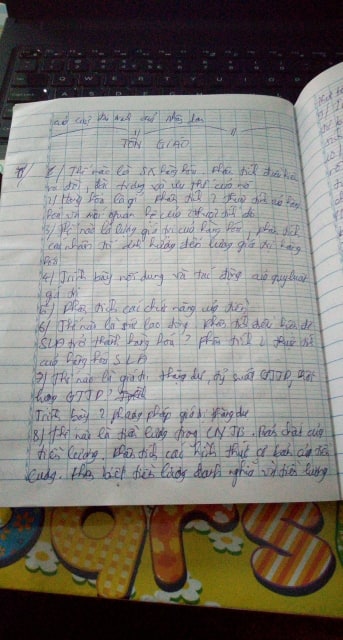 TÔN GIÁO
1/ Thế nào là SX hàng hóa. Phân tích điều kiện
ra đời, đặc trưng và ưu thế của nó
2/ Hàng hóa là gì. Phân tích 2 thuộc tính của hàng
hóa và mối quan hệ của 2 thuộc tính đó
3/ Thế nào là lượng giá trị của hàng hóa, phân tích
các nhân tố ảnh hưởng đến lượng giá trị hàng
hóa
4/ Trình bày nội dung và tác động của quy luật
giá trị
5/ Phân tích các chức năng của tiền
6/ Thế nào là sức lao động. Phân tích điều kiện để
SLĐ trở thành hàng hóa? Phân tích 2 thuộc tính
của hàng hóa SLĐ
7/ Thế nào là giá trị thặng dư, tỷ suất GTTD, khối
lượng GTTD?
Trình bày 2 phương pháp giá trị thặng dư
8/ Thế nào là tiền lương trong CNTB. Bản chất của
tiền lương. Phân tích các hình thức cơ bản của tiền
lương. Phân biệt tiền lương danh nghĩa và tiền lương